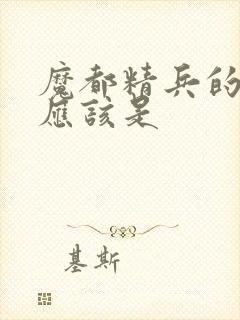 魔都精兵的
應該是
基斯